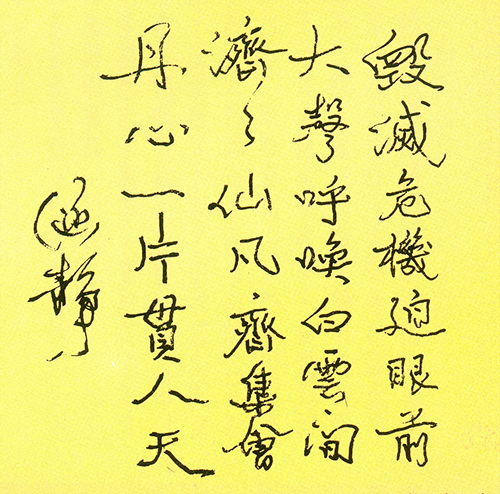 毀滅危機廹眼前
大聲呼喚白雲間
濟々仙凡齊集會
丹心一片貫人天
涵靜